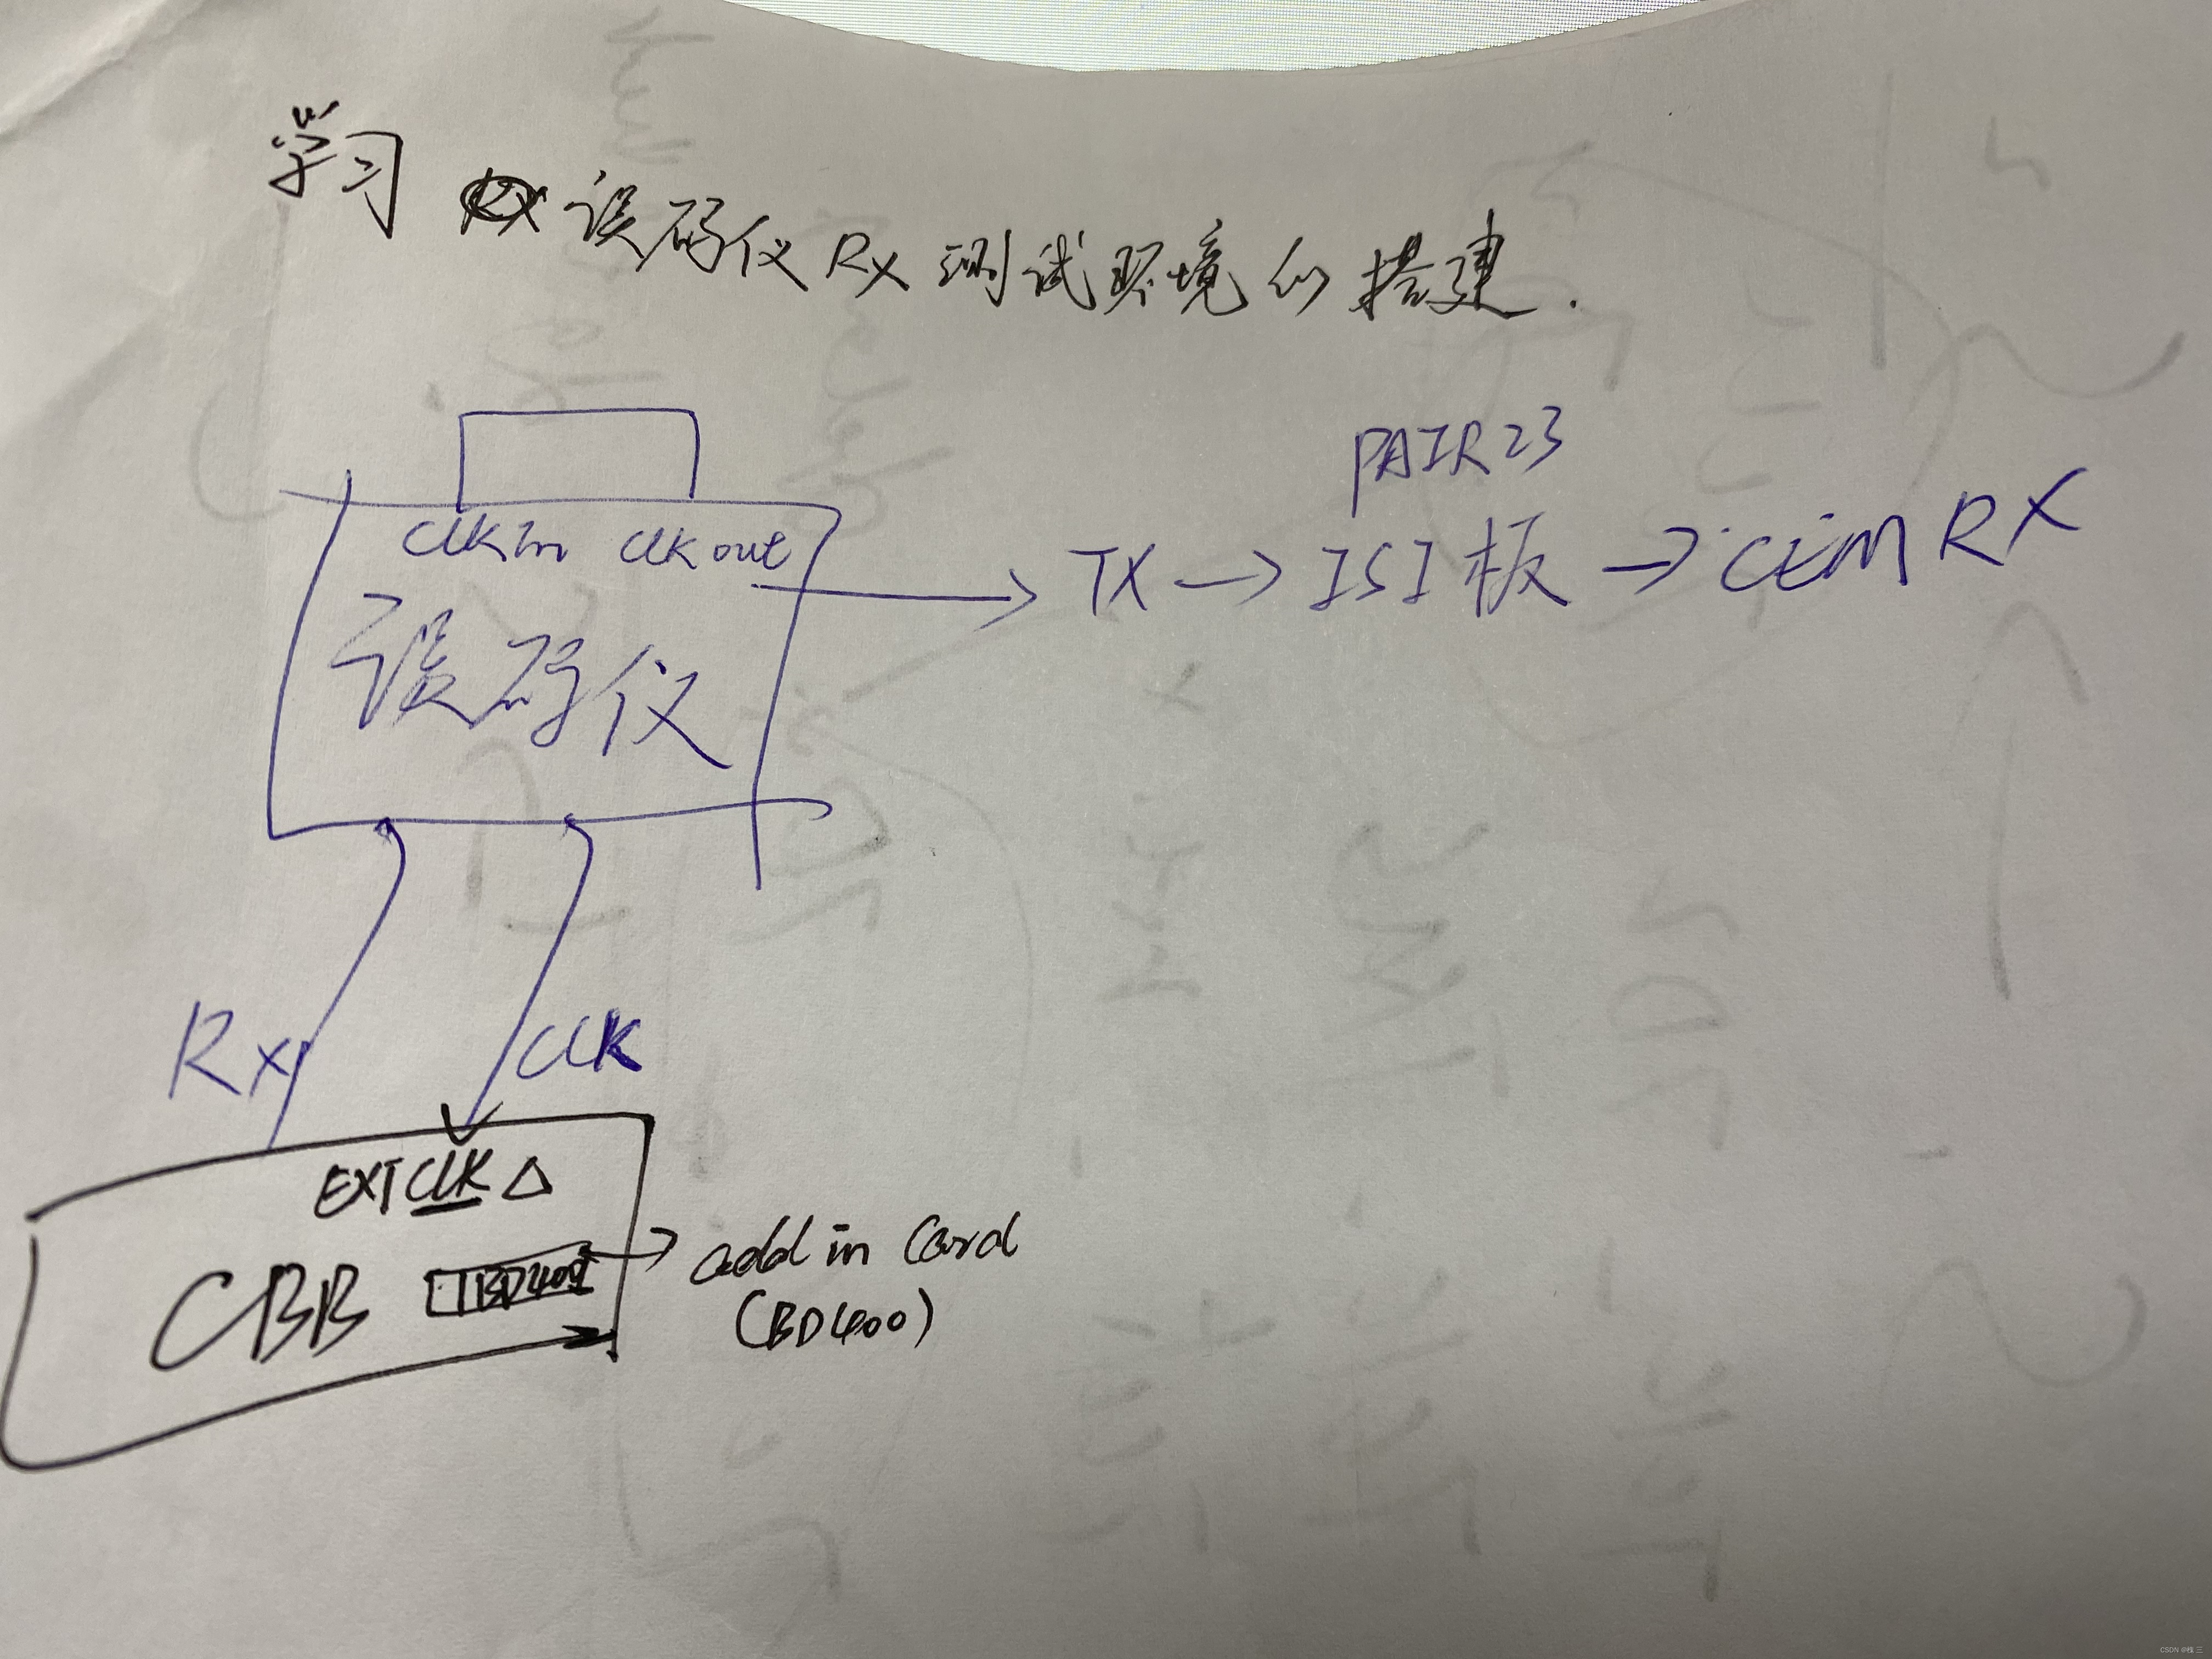 学习 误码仪 Rx 测试环境的搭建.
PAIR23
CLK In CLK out
TX → ISI板 → CEM RX
误码仪
Rx
CLK
EXT CLK △
CBB
BD400
add in Card
(BD400)
CSDN @魏 三